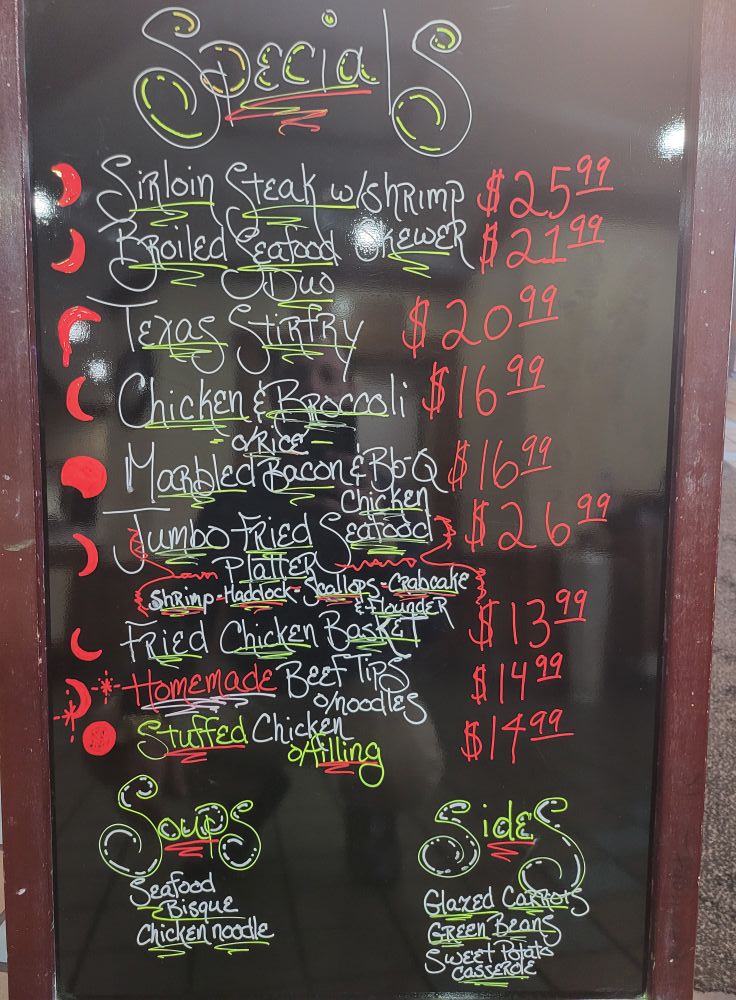 Specials
Sirloin Steak w/shrimp $25.99
Broiled Seafood Skewer $21.99
Duo
Texas Stirfry $20.99
Chicken & Broccoli $16.99
o/Rice
Marbled Bacon & Bb-Q $16.99
Chicken
Jumbo Fried Seafood $26.99
Platter
Shrimp-Haddock-Scallops-Crabcake
& Flounder
Fried Chicken Basket $13.99
Homemade Beef Tips $14.99
o/noodles
Stuffed Chicken $14.99
o/filling
Soups
Seafood
Bisque
Chicken noodle
Sides
Glazed Carrots
Green Beans
Sweet Potato
Casserole